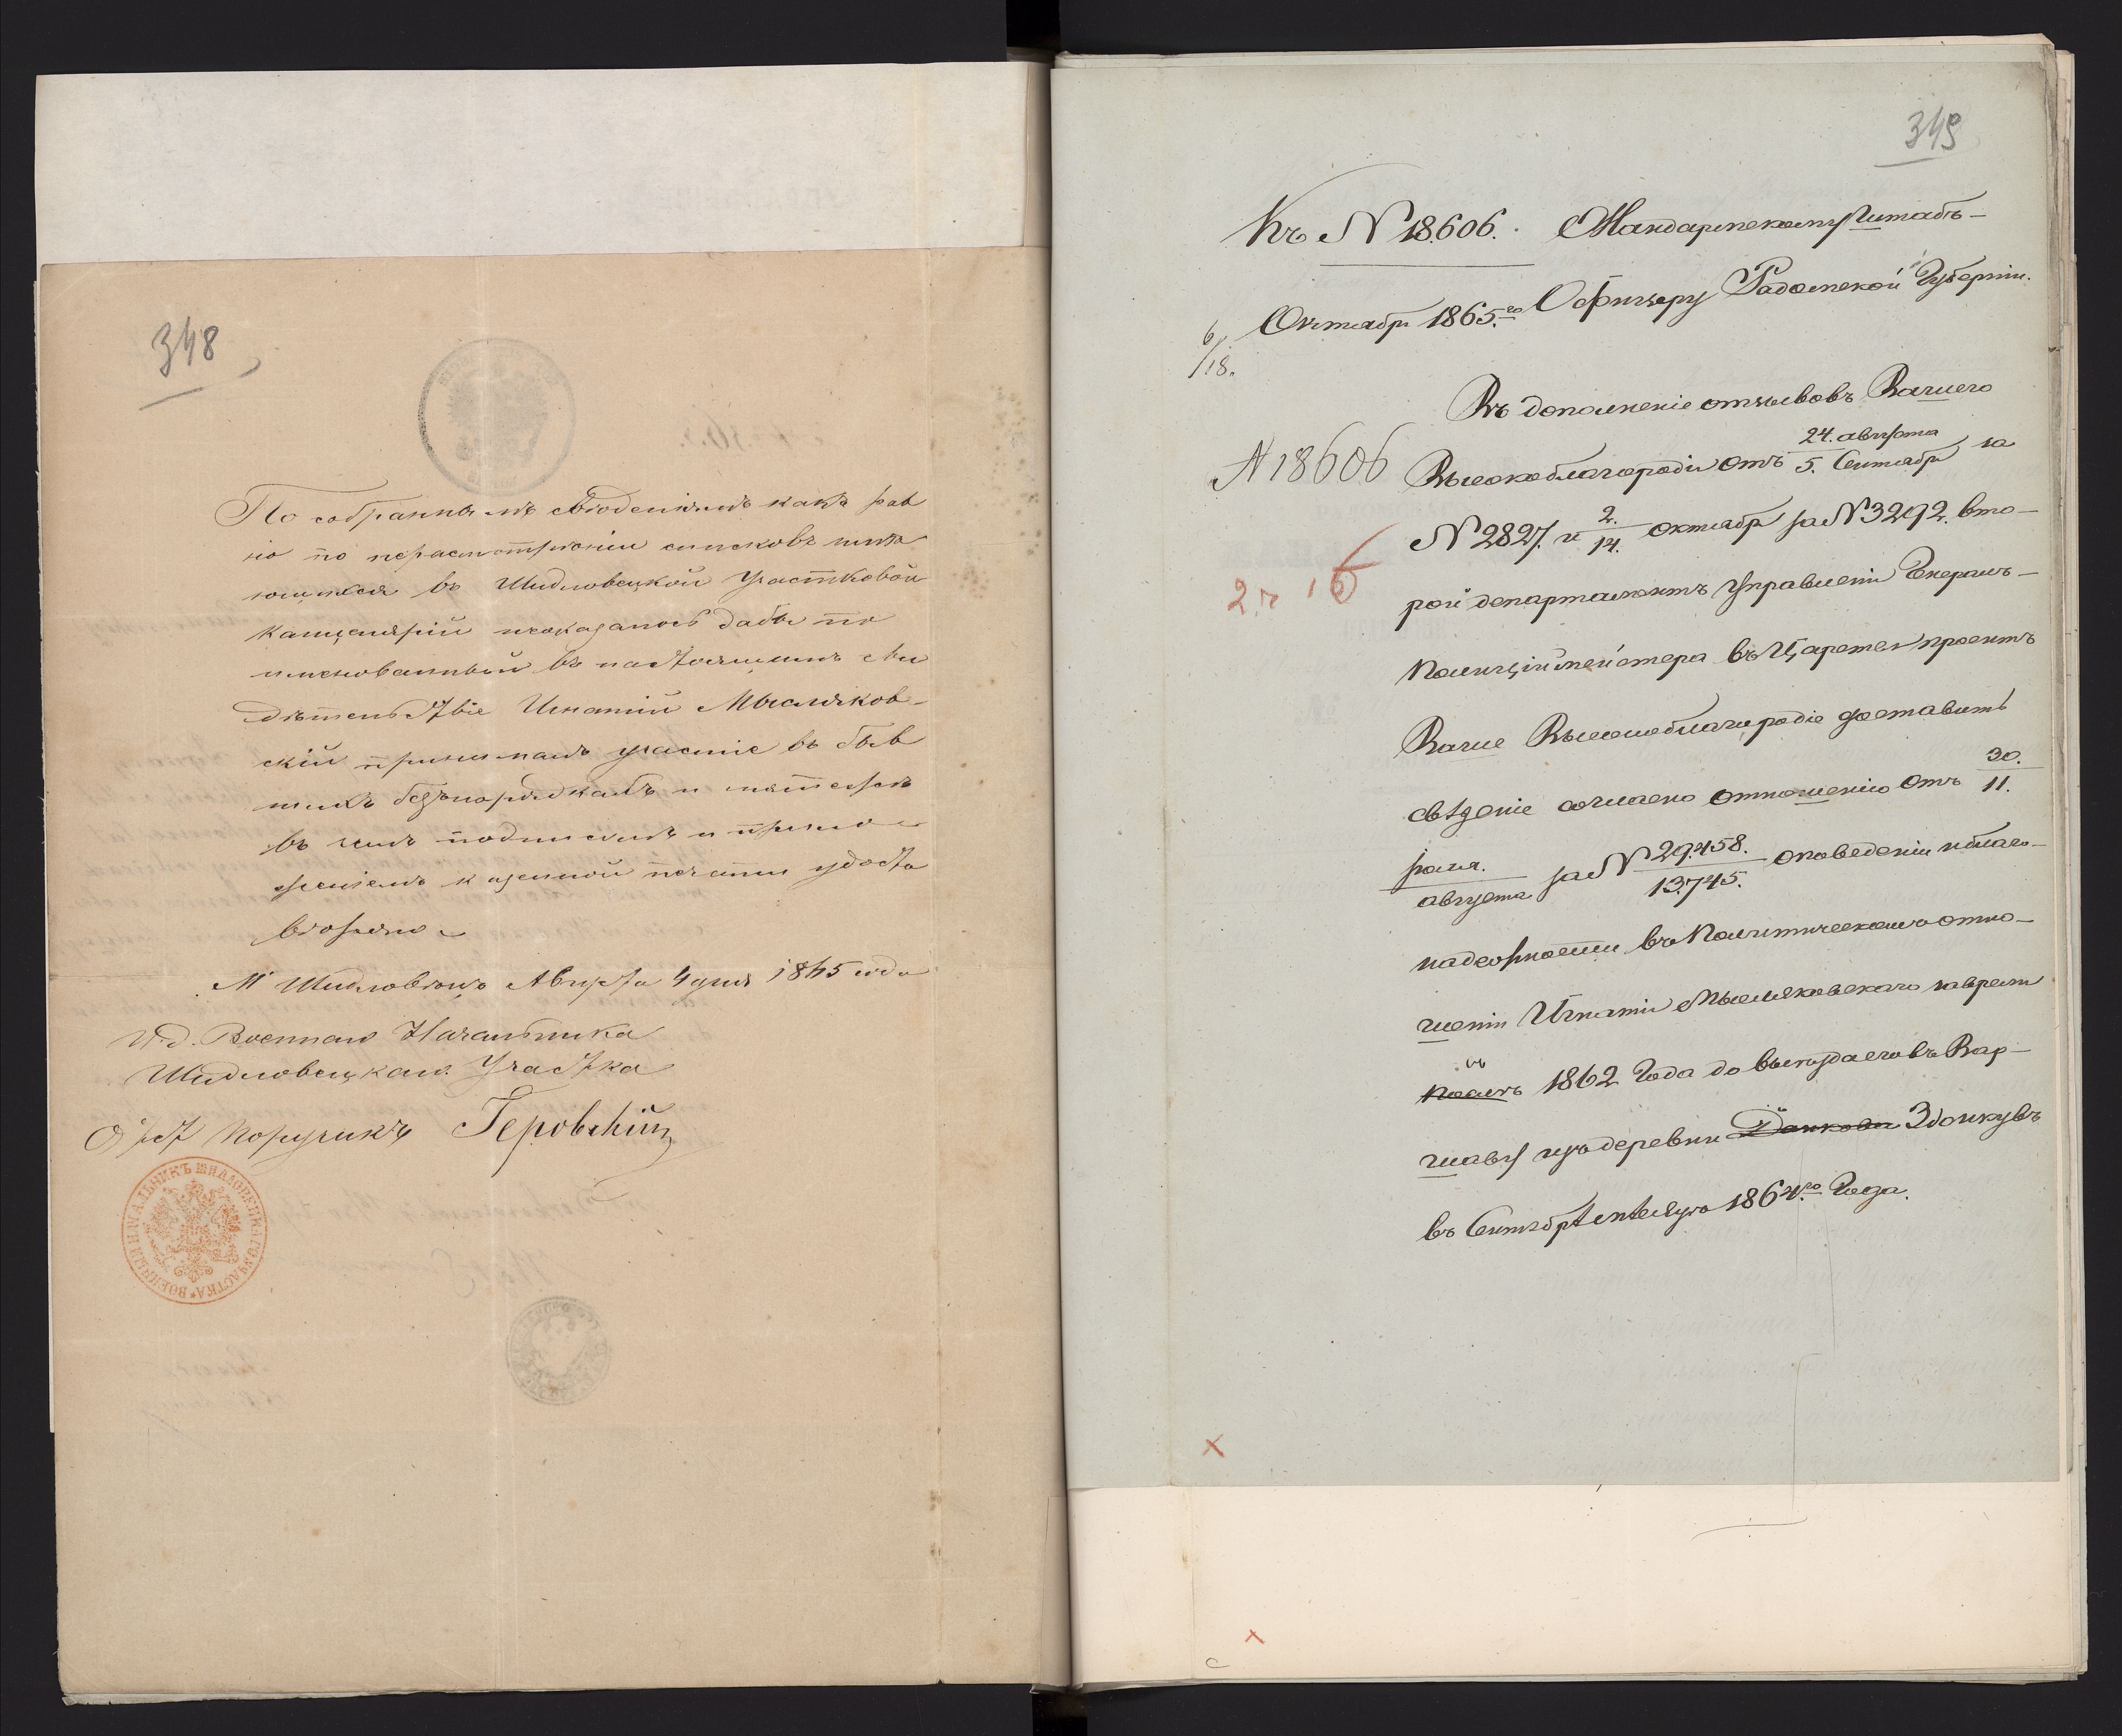 348
По собраннымъ свѣденіямъ какъ рав
но по перасмотрѣніи списковъ имѣ
ющихся въ Шидловецкой Участковой
Канцеляріи неоказалось дабы по
именованный въ настоящемъ сви
дѣтельствіе Игнатій Мысляков-
скій принималъ участіе въ быв
шихъ безпорядкахъ и мятежѣ
въ чемъ подписомъ и прило
женіемъ казенной печати удосто
вѣряю
М Шидловецъ Августа 4 дня 1865 года
И.д. Военнаго Начальника
Шидловецкаго Участка
Поручикъ Геровскій
ВОЕННЫЙ НАЧАЛЬНИКЪ ШИДЛОВЕЦКАГО УЧАСТКА
349
Къ N 18.606. Жандармскому Штабъ-
Офицеру Радомской Губерніи.
6/18. Октября 1865.го
Въ дополненіе отзывовъ Вашего
N 18606
Высокоблагородія отъ 24. августа / 5. Сентября за
N 2827. и 2./14. октября за N 3292. вто-
рой департаментъ Управленія Генералъ-
Полиціймейстера въ Царствѣ проситъ
Ваше Высокоблагородіе доставить
свѣденіе согласно отношенію отъ 30. / 11.
іюля. / августа за N 29.458. / 13.745. о поведеніи и благо-
надежности въ Политическомъ отно-
шеніи Игнатія Мысляковскаго за время
съ
1862 Года до выезда его въ Вар-
шаву изъ деревни Здзихувъ
въ Сентябрѣ мѣсяцѣ 1864.го Года.